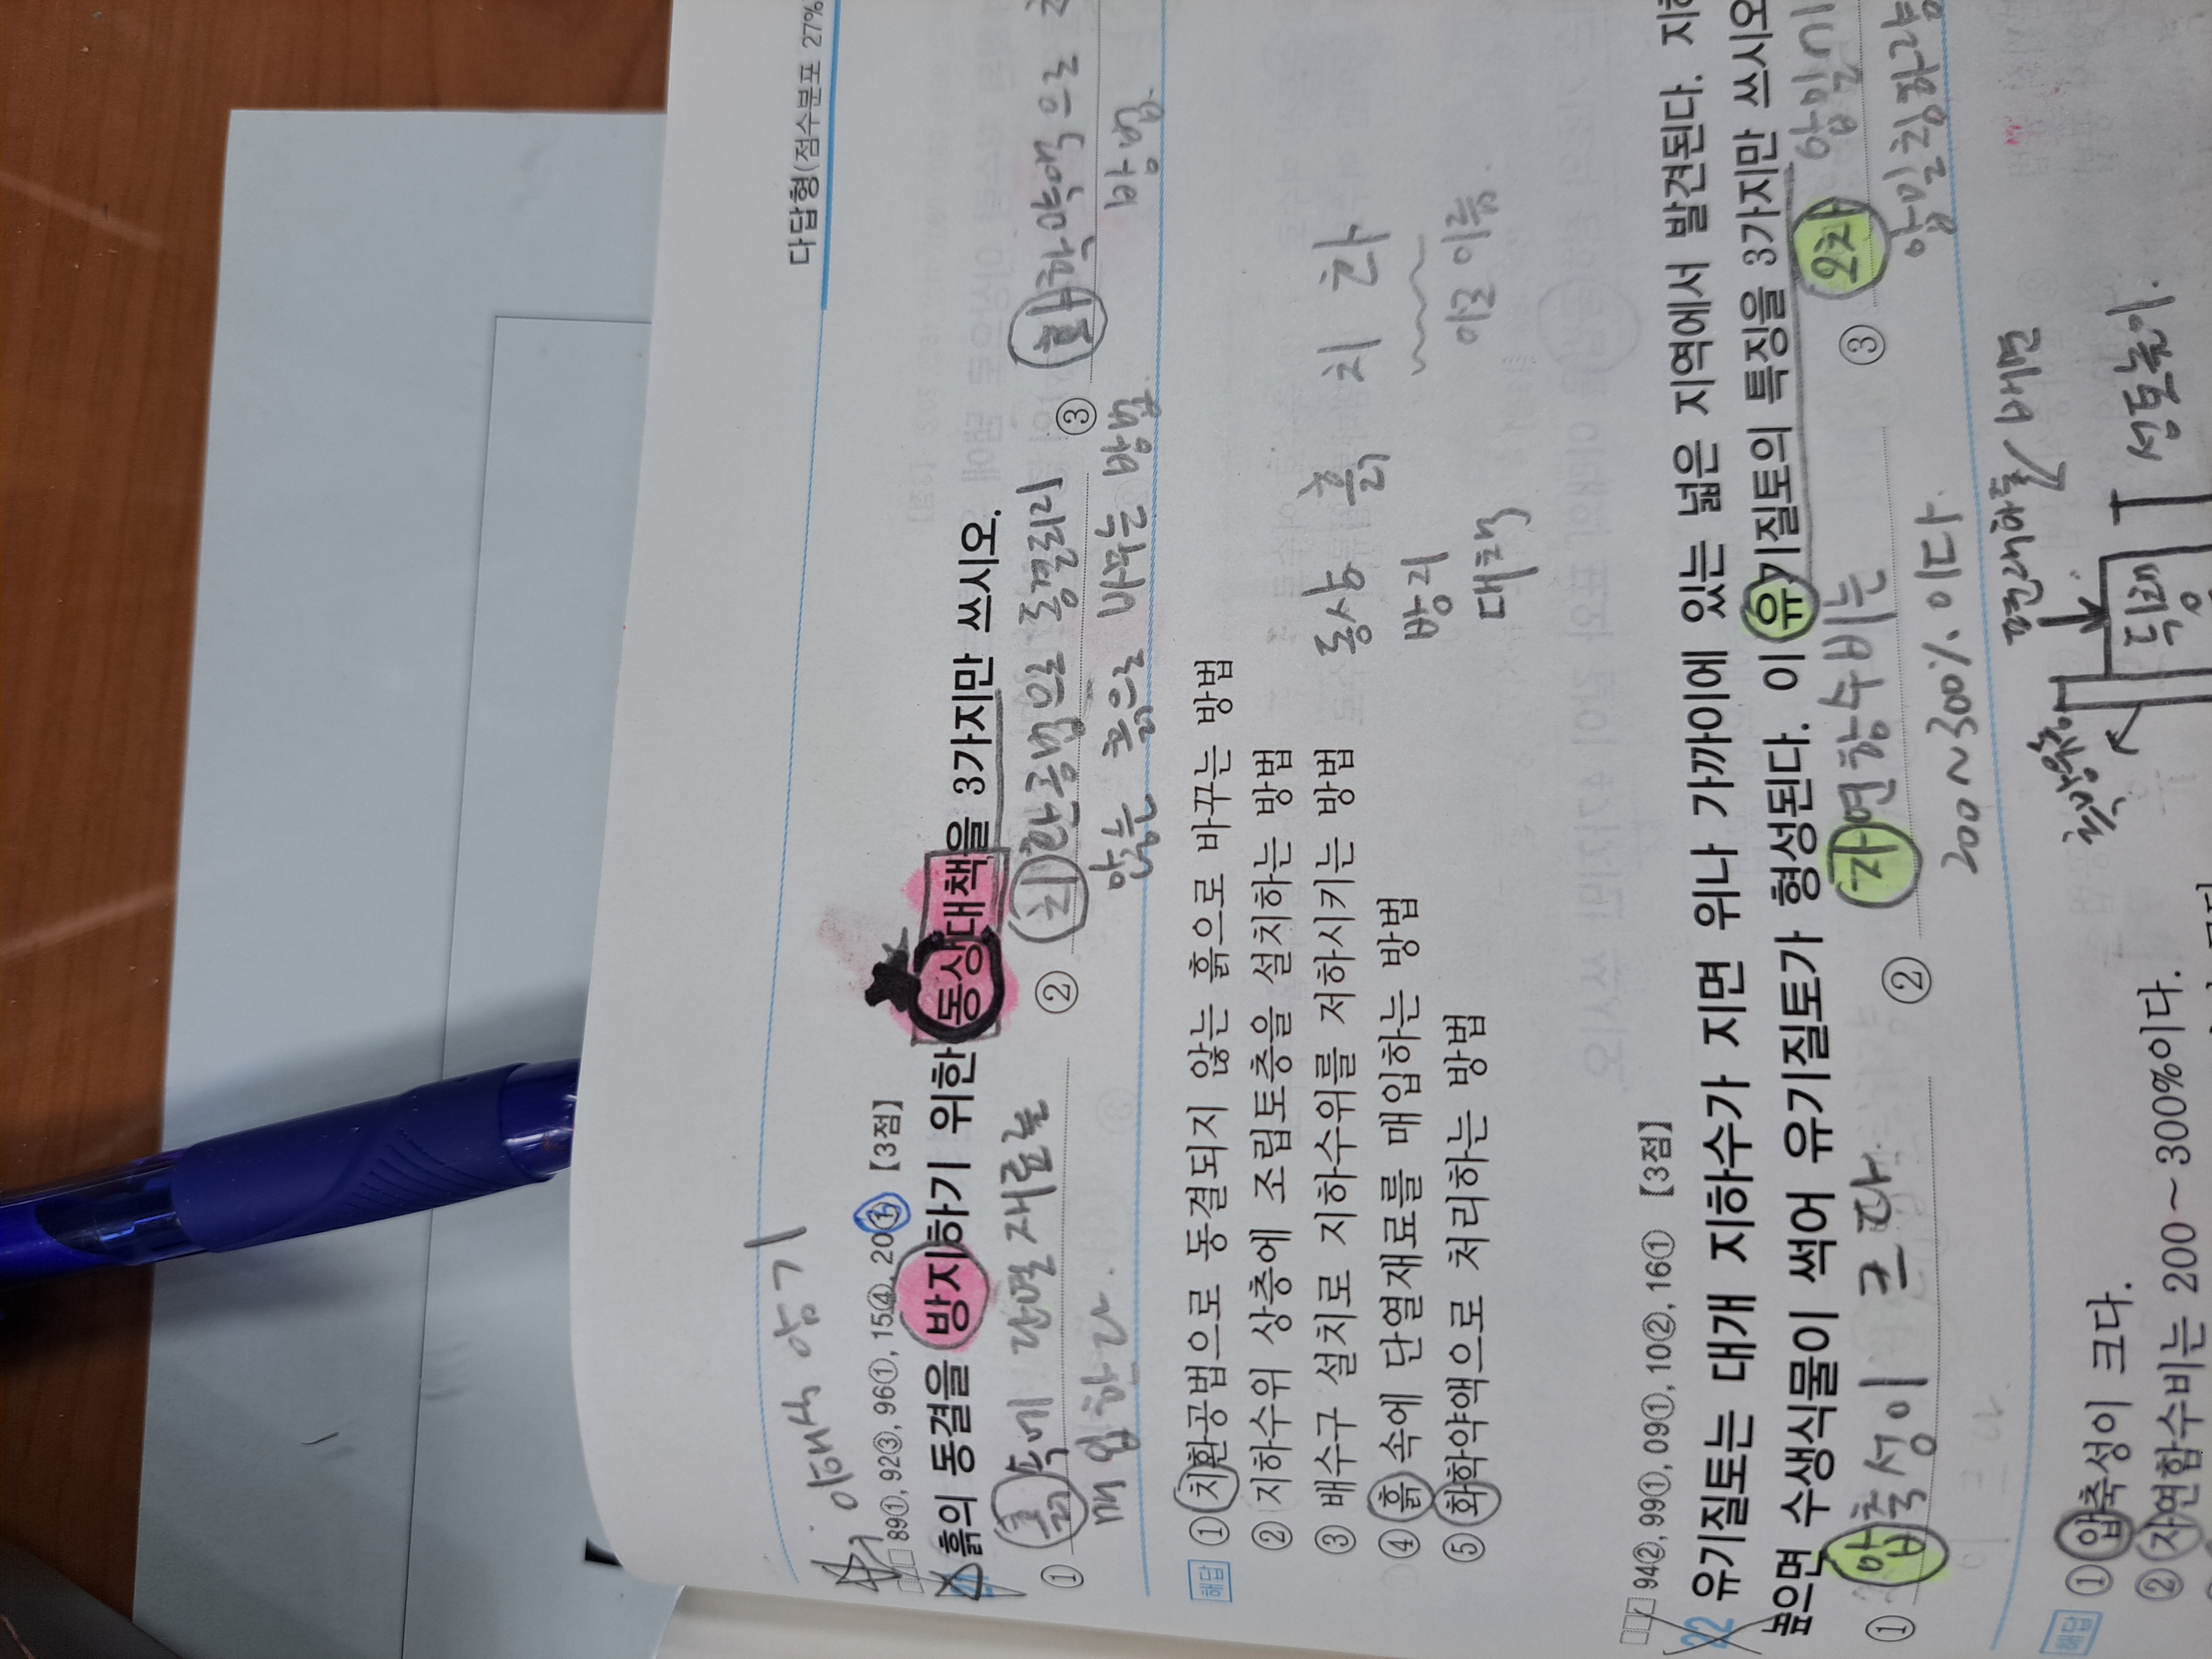 다답형(점수분포 27%
이해와 암기
89①, 92③, 96①, 15④, 20① 【3점】
흙의 동결을 방지하기 위한 동상대책을 3가지만 쓰시오.
① 흙속에 단열재료를 매입한다.
② 치환공법으로 동결되지 않는 흙으로 바꾸는 방법
③ 화학약액으로
방법
해답 ① 치환공법으로 동결되지 않는 흙으로 바꾸는 방법
② 지하수위 상층에 조립토층을 설치하는 방법
③ 배수구 설치로 지하수위를 저하시키는 방법
④ 흙 속에 단열재료를 매입하는 방법
⑤ 화학약액으로 처리하는 방법
동상 흙 치 화
방지
대책
이름
94②, 99①, 09①, 10②, 16① 【3점】
22 유기질토는 대개 지하수가 지면 위나 가까이에 있는 넓은 지역에서 발견된다. 지
높으면 수생식물이 썩어 유기질토가 형성된다. 이 유기질토의 특징을 3가지만 쓰시오
① 압축성이 크다
② 자연함수비는
200~300% 이다.
③ 2차 압밀침하량
해답 ① 압축성이 크다.
② 자연함수비는 200~300%이다.
뒤채움
성토높이